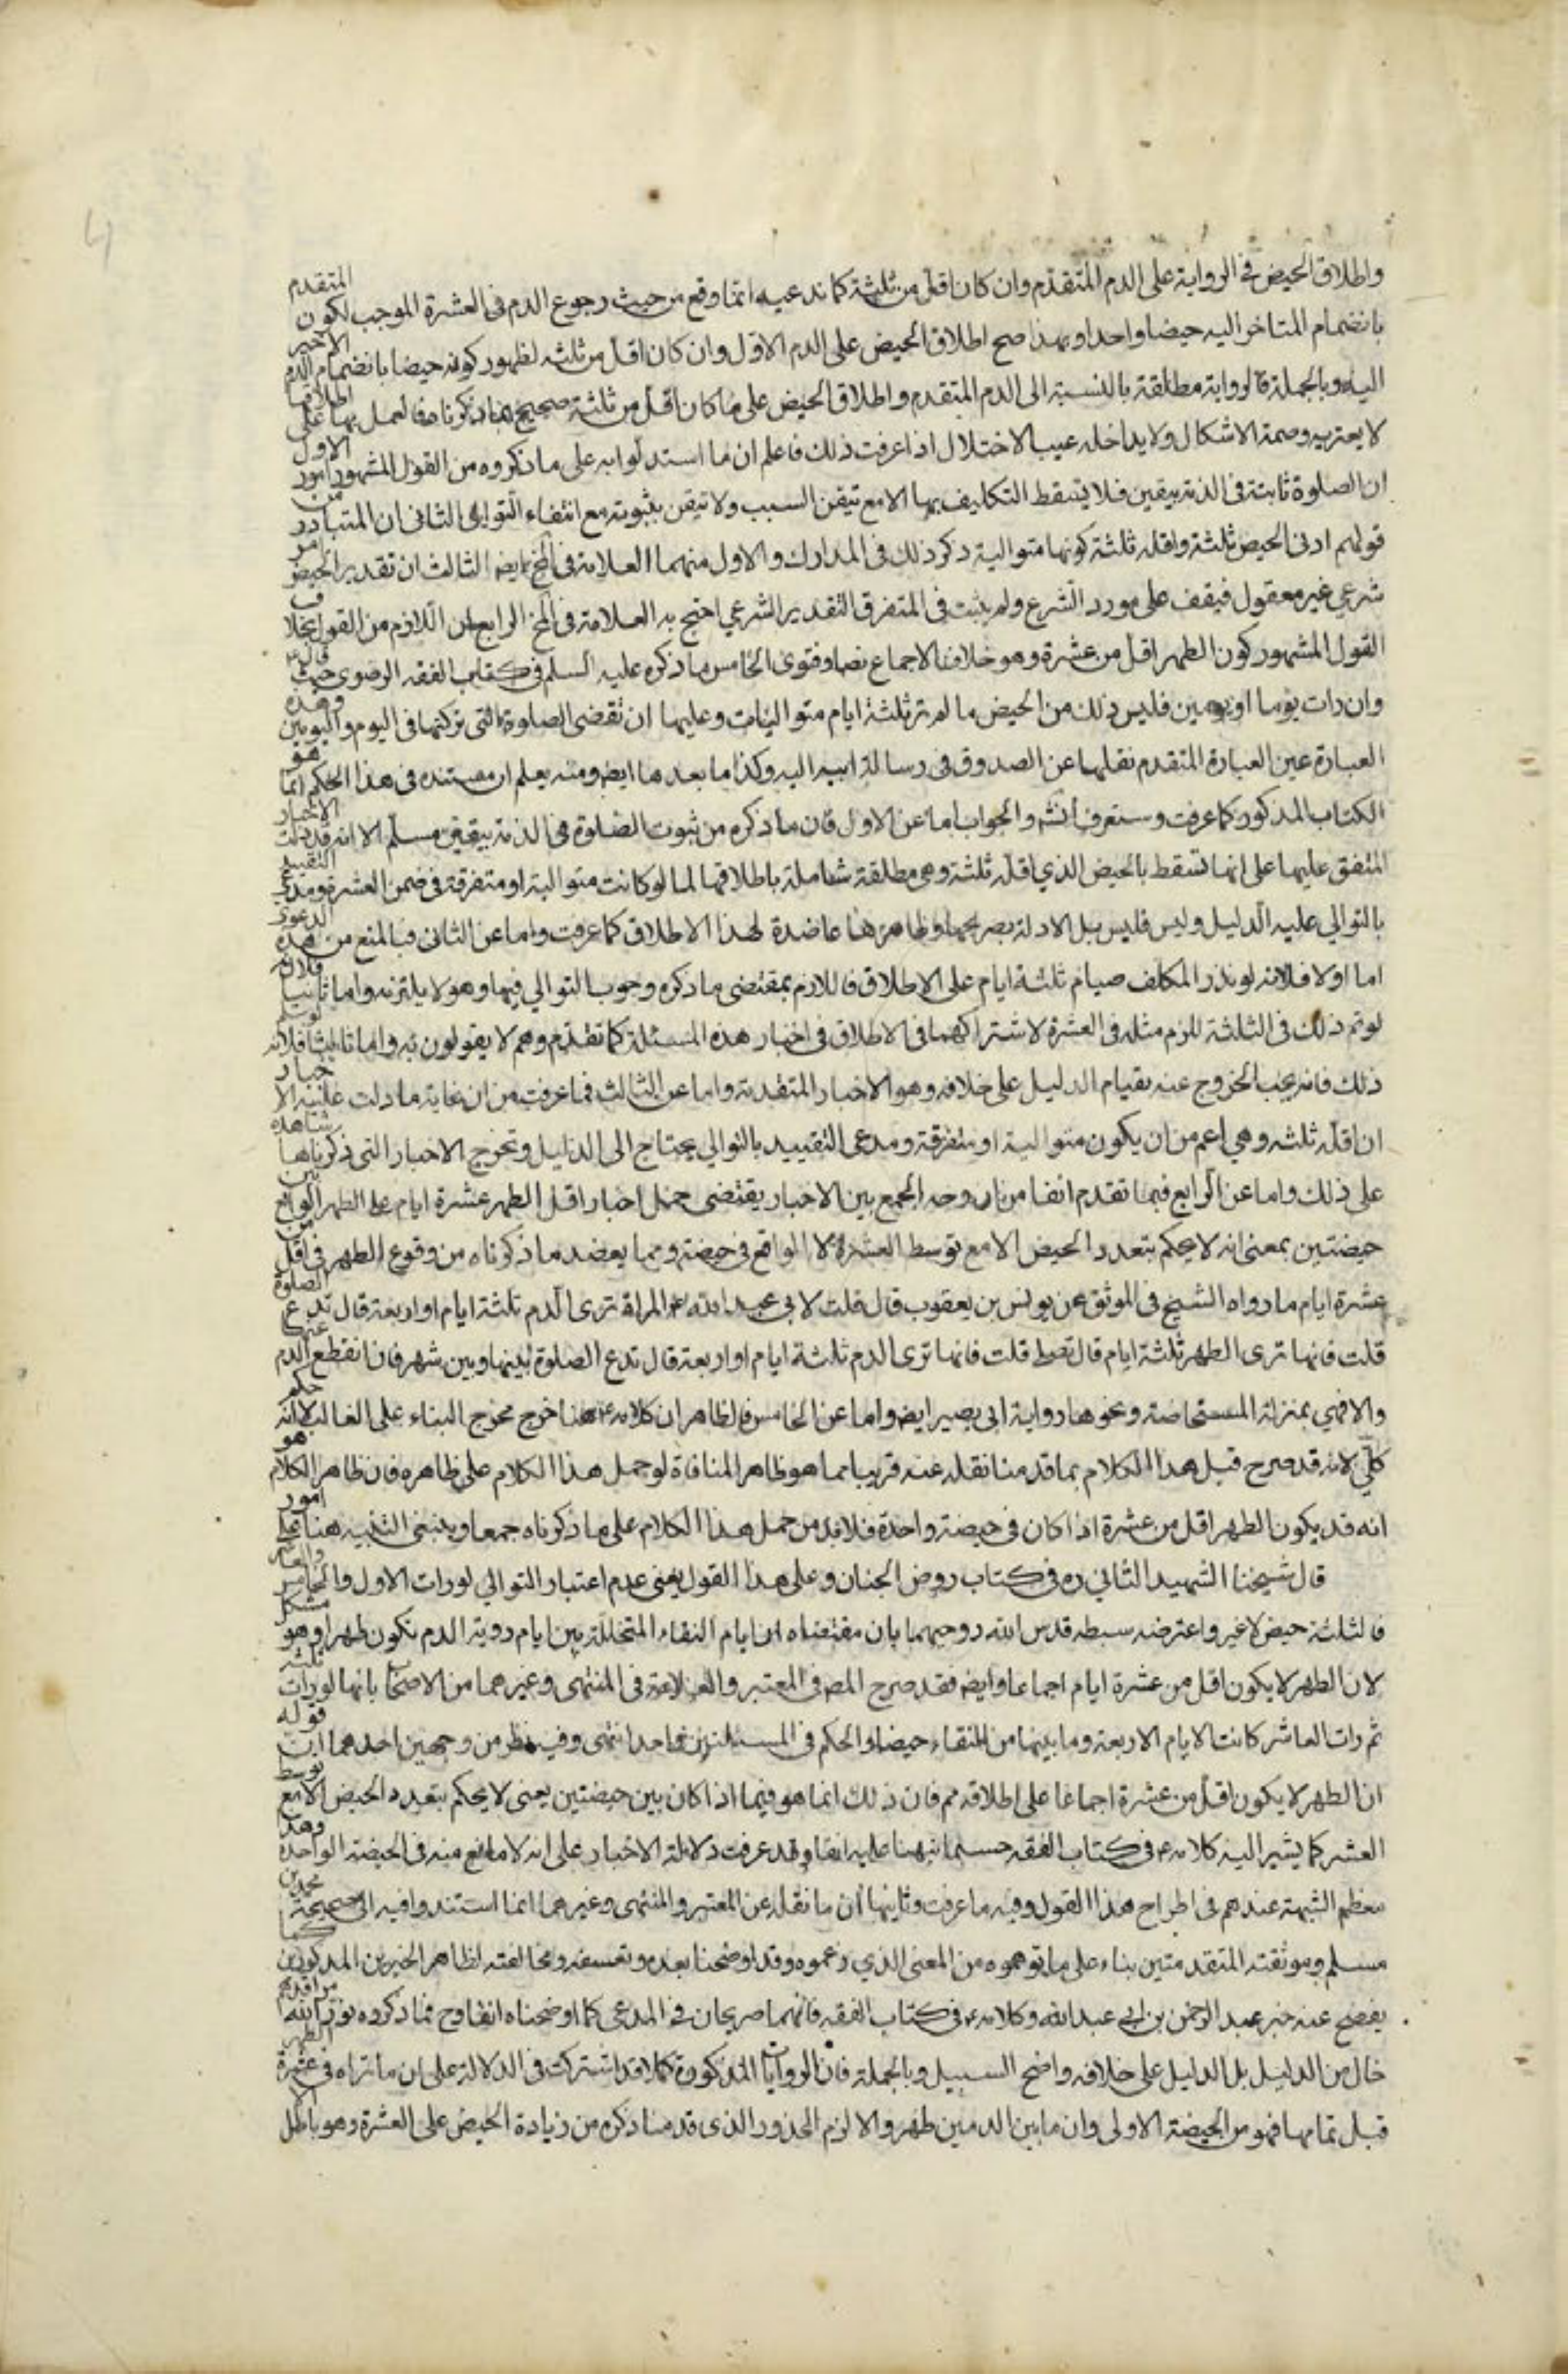 واطلاق الحيض في الرواية على الدم المتقدم وان كان اقل من ثلثة كما ندعيه انما وقع من حيث رجوع الدم في العشرة الموجب لكون المتقدم
بانضمام المتاخر اليه حيضا واحدا وبهذا صح اطلاق الحيض على الدم الاول وان كان اقل من ثلثه لظهور كونه حيضا بانضمام الدم الاخير
اليه وبالجملة فالرواية مطلقة بالنسبة الى الدم المتقدم واطلاق الحيض على ما كان اقل من ثلثة صحيح بما ذكرنا فالعمل بها على اطلاقها
لا يعتريه وصمة الاشكال ولا يداخله عيب الاختلال اذا عرفت ذلك فاعلم ان ما استدلوا به على ما ذكروه من القول المشهور امور الاول
ان الصلوة ثابتة في الذمة بيقين فلا يسقط التكليف بها الا مع تيقن السبب ولا تيقن بثبوته مع انتفاء التوالي الثاني ان المتبادر من
قولهم ادنى الحيض ثلثة واقله ثلثة كونها متوالية ذكر ذلك في المدارك والاول منهما العلامة في المخ ايضا الثالث ان تقدير الحيض امر
شرعي غير معقول فيقف على مورد الشرع ولم يثبت في المتفرق التقدير الشرعي احتج به العلامة في المخ الرابع ان اللازم من القول بخلاف
القول المشهور كون الطهر اقل من عشرة وهو خلاف الاجماع نصا وفتوى الخامس ما ذكره عليه السلم في كتاب الفقه الرضوي حيث قال ع
وان رات يوما او يومين فليس ذلك من الحيض ما لم تر ثلثة ايام متواليات وعليها ان تقضى الصلوة التي تركتها في اليوم واليومين وهذه
العبارة عين العبارة المتقدم نقلها عن الصدوق في رسالة ابيه اليه وكذا ما بعدها ايض ومنه يعلم ان مستنده في هذا الحكم انما هو
الكتاب المذكور كما عرفت وستعرف انش والجواب اما عن الاول فان ما ذكره من ثبوت الصلوة في الذمة بيقين مسلم الا انه قد دلت الاخبار
المتفق عليها على انها تسقط بالحيض الذي اقله ثلثة وهي مطلقة شاملة باطلاقها لما لو كانت متوالية او متفرقة في ضمن العشرة ومدعي التقييد
بالتوالي عليه الدليل وليس فليس بل الادلة بصريحها وظاهرها عاضدة لهذا الاطلاق كما عرفت واما عن الثاني فبالمنع من هذه الدعوى
اما اولا فلانه لو نذر المكلف صيام ثلثة ايام على الاطلاق فاللازم بمقتضى ما ذكره وجوب التوالي فيها وهو لا يلتزمه واما ثانيا فلانه
لو تم ذلك في الثلثة للزم مثله في العشرة لاشتراكهما في الاطلاق في اخبار هذه المسئلة كما تقدم وهم لا يقولون به واما ثالثا فلانه لو سلم
ذلك فانه يجب الخروج عنه بقيام الدليل على خلافه وهو الاخبار المتقدمة واما عن الثالث فما عرفت من ان غاية ما دلت عليه الاخبار
ان اقله ثلثه وهي اعم من ان يكون متوالية او متفرقة ومدعى التقييد بالتوالي يحتاج الى الدليل وتخرج الاخبار التي ذكرناها شاهده
على ذلك واما عن الرابع فبما تقدم انفا من ان وجه الجمع بين الاخبار يقتضى حمل اخبار اقل الطهر عشرة ايام على الطهر الواقع بين
حيضتين بمعنى انه لا يحكم بتعدد الحيض الا مع توسط العشرة لا الواقع في حيضة ومما يعضد ما ذكرناه من وقوع الطهر في اقل من
عشرة ايام ما رواه الشيخ في الموثق عن يونس بن يعقوب قال قلت لابي عبد الله ع المراة ترى الدم ثلثة ايام او اربعة قال تدع الصلوة
قلت فانها ترى الطهر ثلثة ايام قال تصلى قلت فانها ترى الدم ثلثة ايام او اربعة قال تدع الصلوة بينها وبين شهر فان انقطع الدم عنها
والا فهي بمنزلة المستحاضة ونحوها رواية ابى بصير ايض واما عن الخامس فالظاهر ان كلامه ع هنا خرج مخرج البناء على الغالب لا انه حكم
كلي لانه قد صرح قبل هذا الكلام بما قدمنا نقله عنه قريبا مما هو ظاهر المنافاة لو حمل هذا الكلام على ظاهره فان ظاهر الكلام هو
انه قد يكون الطهر اقل من عشرة اذا كان في حيضة واحدة فلابد من حمل هذا الكلام على ما ذكرناه جمعا وينبغي التنبيه هنا على امور
قال شيخنا الشهيد الثاني ره في كتاب روض الجنان وعلى هذا القول يعنى عدم اعتبار التوالي لو رات الاول والخامس والعاشر
فالثلثة حيض لا غير واعترضه سبطه قدس الله روحيهما بان مقتضاه ان ايام النقاء المتخللة بين ايام روية الدم تكون طهرا وهو مشكل
لان الطهر لا يكون اقل من عشرة ايام اجماعا وايض فقد صرح المص في المعتبر والعلامة في المنتهى وغيرهما من الاصحاب بانها لو رات ثلثه
ثم رات العاشر كانت الايام الاربعة وما بينها من النقاء حيضا والحكم في المسئلتين واحد انتهى وفيه نظر من وجهين احدهما ان قوله
ان الطهر لا يكون اقل من عشرة اجماعا على اطلاقه مم فان ذلك انما هو فيما اذا كان بين حيضتين يعنى لا يحكم بتعدد الحيض الا مع توسط
العشر كما يشير اليه كلامه ع في كتاب الفقه حسبما نبهنا عليه انفا وقد عرفت دلالة الاخبار على انه لا مانع منه في الحيضة الواحدة وهذا
معظم الشبهة عندهم في اطراح هذا القول وفيه ما عرفت وثانيها ان ما نقله عن المعتبر والمنتهى وغيرهما انما استندوا فيه الى صحيحة محمد بن
مسلم وموثقته المتقدمتين بناء على ما توهموه من المعنى الذي زعموه وقد اوضحنا بعده وتعسفه ومخالفته لظاهر الخبرين المذكورين كما
يفصح عنه خبر عبد الرحمن بن ابي عبد الله وكلامه ع في كتاب الفقه فانهما صريحان في المدعى كما اوضحناه انفا وح فما ذكروه نور الله مراقدهم
خال من الدليل بل الدليل على خلافه واضح السبيل وبالجملة فان الروايات المذكورة كلا قد اشتركت في الدلالة على ان ما تراه في عشرة الطهر
قبل تمامها فهو من الحيضة الاولى وان ما بين الدمين طهر والا لزم المحذور الذى قدمنا ذكره من زيادة الحيض على العشرة وهو باطل